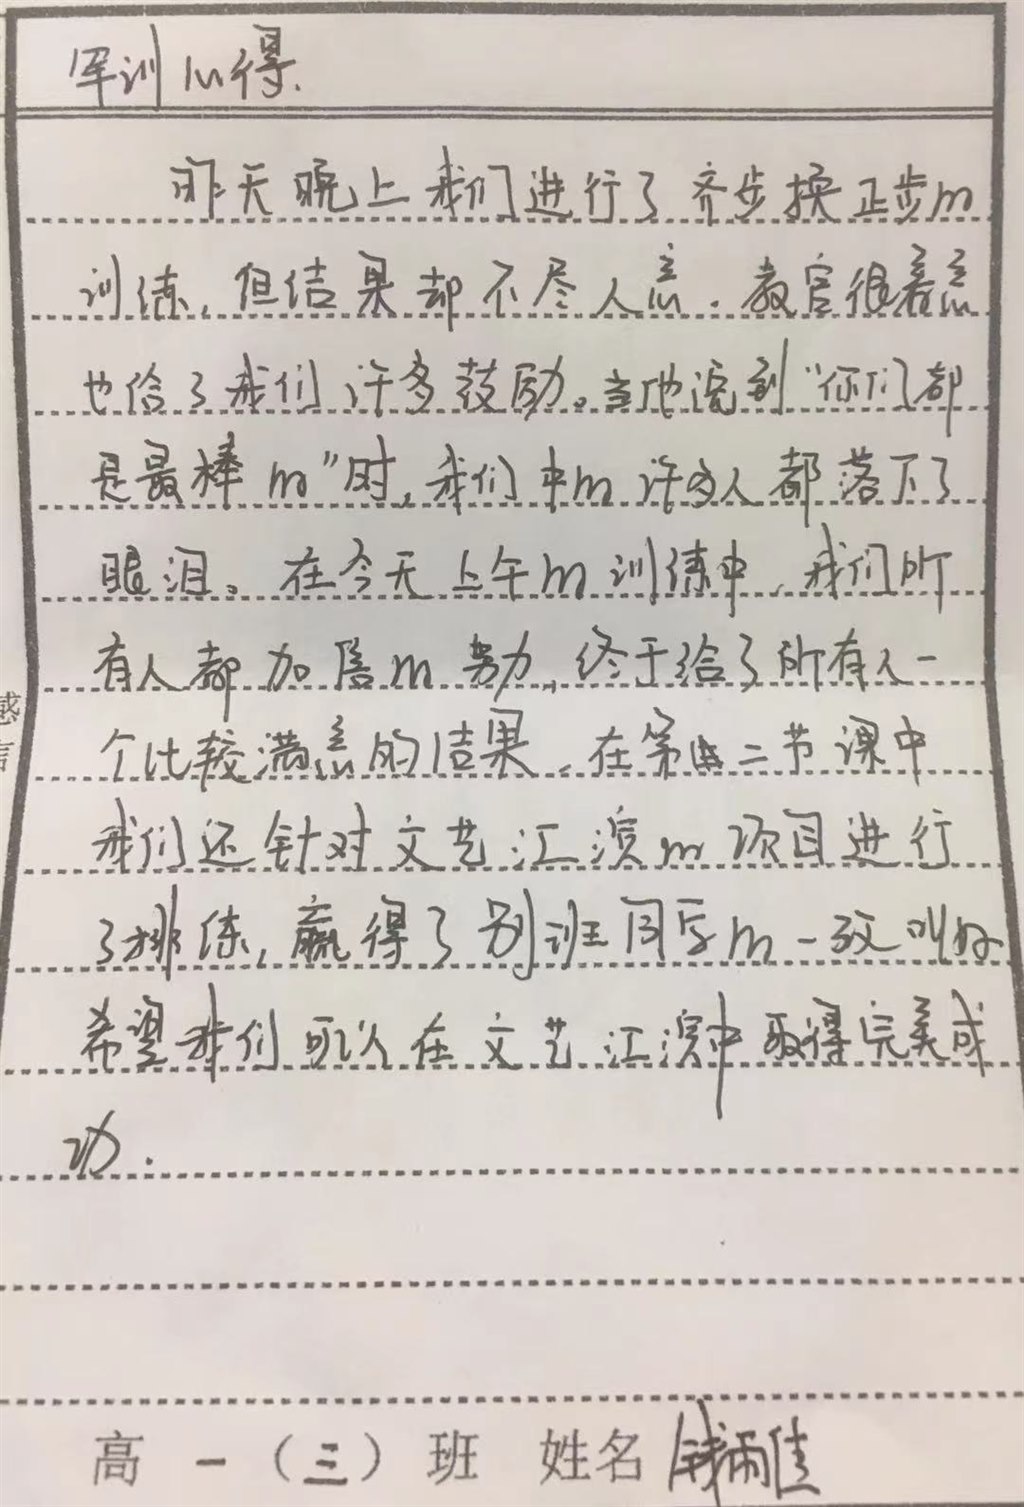 军训心得.
昨天晚上我们进行了齐步换正步的
训练,但结果却不尽人意.教官很着急
也给了我们许多鼓励。当他说到“你们都
是最棒的”时,我们中的许多人都落下了
眼泪。在今天上午的训练中,我们所
有人都加倍的努力,终于给了所有人一
个比较满意的结果,在第二节课中
我们还针对文艺汇演的项目进行
了排练,赢得了别班同学的一致叫好
希望我们可以在文艺汇演中取得完美成
功.
感
言
高一(三)班 姓名 钱雨佳